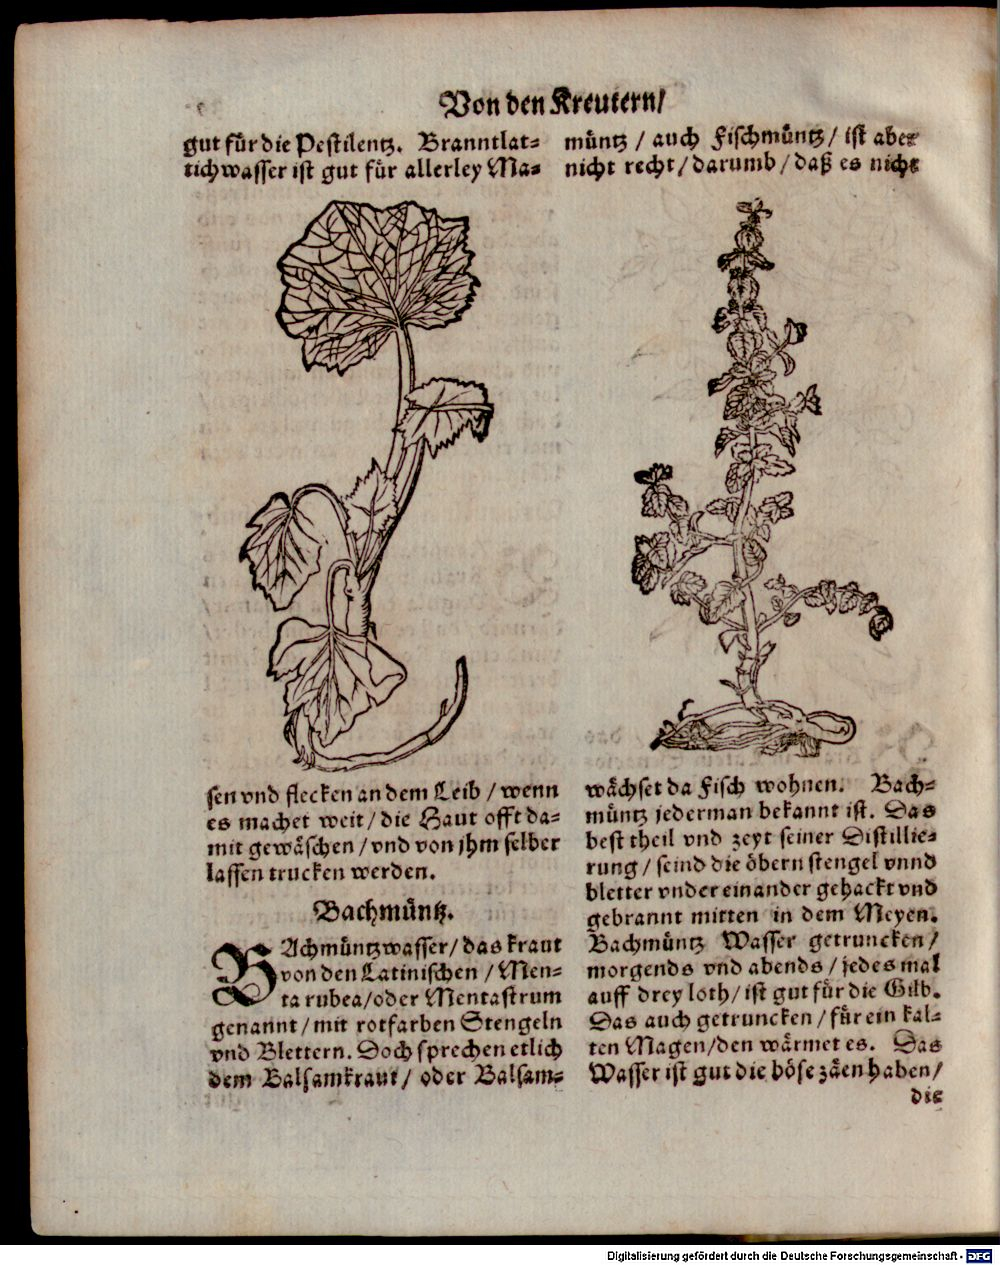 Von den Kreutern/
gut für die Pestilentz. Branntlat-
tichwasser ist gut für allerley Ma-
sen vnd flecken an dem Leib / wenn
es machet weit / die Haut offt da-
mit gewäschen / vnd von jhm selber
lassen trucken werden.
Bachmüntz.
BAchmüntzwasser / das kraut
von den Latinischen / Men-
ta rubea/oder Mentastrum
genannt / mit rotfarben Stengeln
vnd Blettern. Doch sprechen etlich
dem Balsamkraut / oder Balsam-
müntz / auch Fischmüntz / ist aber
nicht recht / darumb / daß es nicht
wächset da Fisch wohnen. Bach-
müntz jederman bekannt ist. Das
best theil vnd zeyt seiner Distillie-
rung / seind die öbern stengel vnnd
bletter vnder einander gehackt vnd
gebrannt mitten in dem Meyen.
Bachmüntz Wasser getruncken /
morgends vnd abends / jedes mal
auff drey loth / ist gut für die Gilb.
Das auch getruncken / für ein kal-
ten Magen/den wärmet es. Das
Wasser ist gut die böse zäen haben /
die
Digitalisierung gefördert durch die Deutsche Forschungsgemeinschaft - DFG